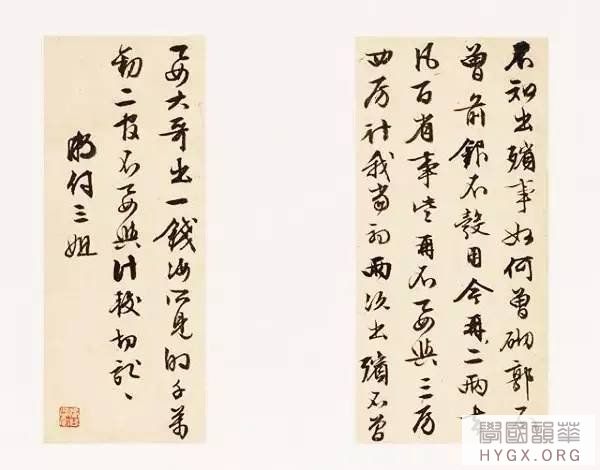 不知出殯事如何曾砌郭不
曾前銀不彀用今再二兩去
凡百省事些再不要與三房
四房計我當初兩次出殯不曾
要大哥出一錢汝所見的千萬
勸二官不要與計較切記〻
明付三姐
學國韻華
HYGX.ORG